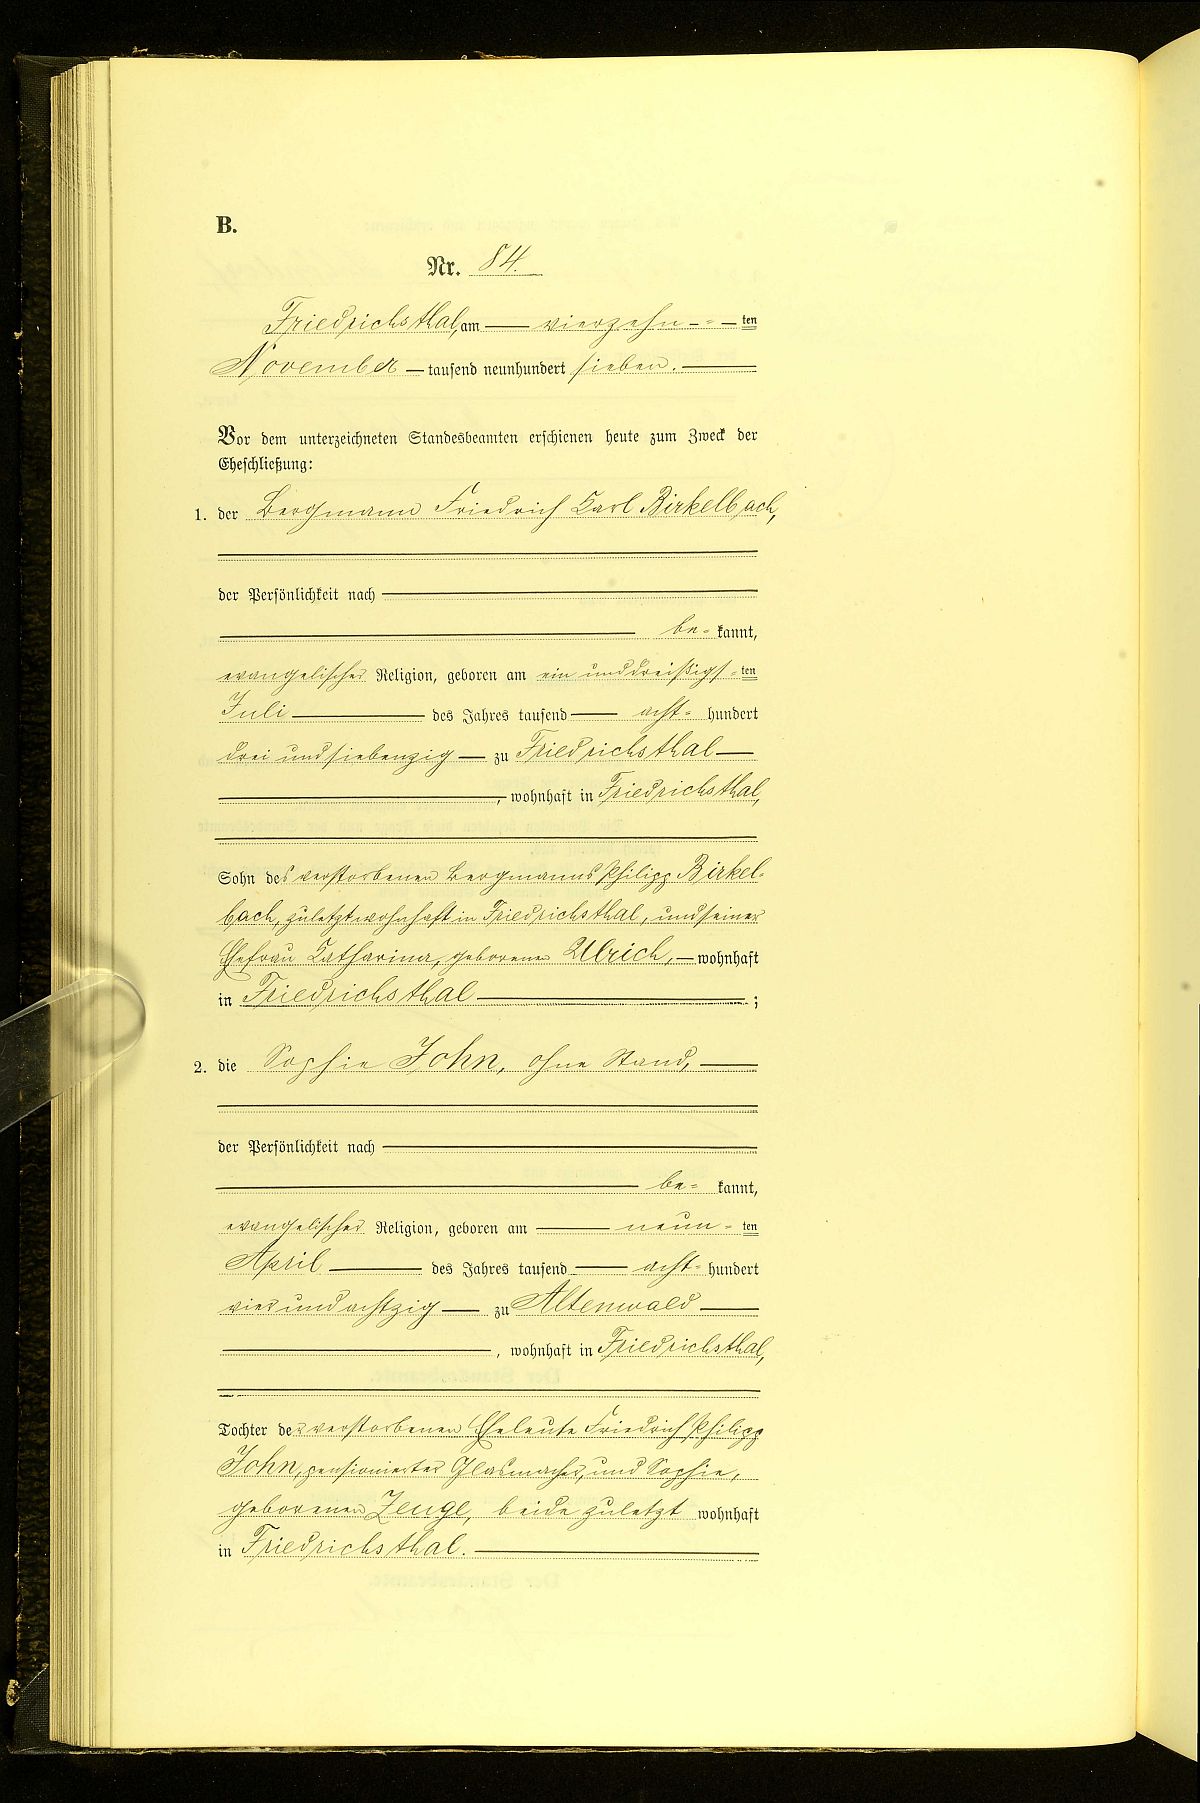 B.
Nr. 84.
Friedrichsthal, am vierzehn ten
November tausend neunhundert sieben.
Vor dem unterzeichneten Standesbeamten erschienen heute zum Zweck der
Eheschließung:
1. der Bergmann Friedrich Carl Birkelbach,
der Persönlichkeit nach
be= kannt,
evangelischer Religion, geboren am ein und dreißigs= ten
Juli des Jahres tausend acht= hundert
drei und siebenzig zu Friedrichsthal
, wohnhaft in Friedrichsthal,
Sohn des verstorbenen Bergmanns Philipp Birkel=
bach, zuletzt wohnhaft in Friedrichsthal, und seiner
Ehefrau Catharina, geborenen Ulrich, wohnhaft
in Friedrichsthal ;
2. die Sophie John, ohne Stand,
der Persönlichkeit nach
be= kannt,
evangelischer Religion, geboren am neun= ten
April des Jahres tausend acht= hundert
vier und achtzig zu Altenwald
, wohnhaft in Friedrichsthal,
Tochter der verstorbenen Eheleute Friedrich Philipp
John, pensionierter Glasmacher, und Sophie,
geborenen Zeuge, beide zuletzt wohnhaft
in Friedrichsthal.